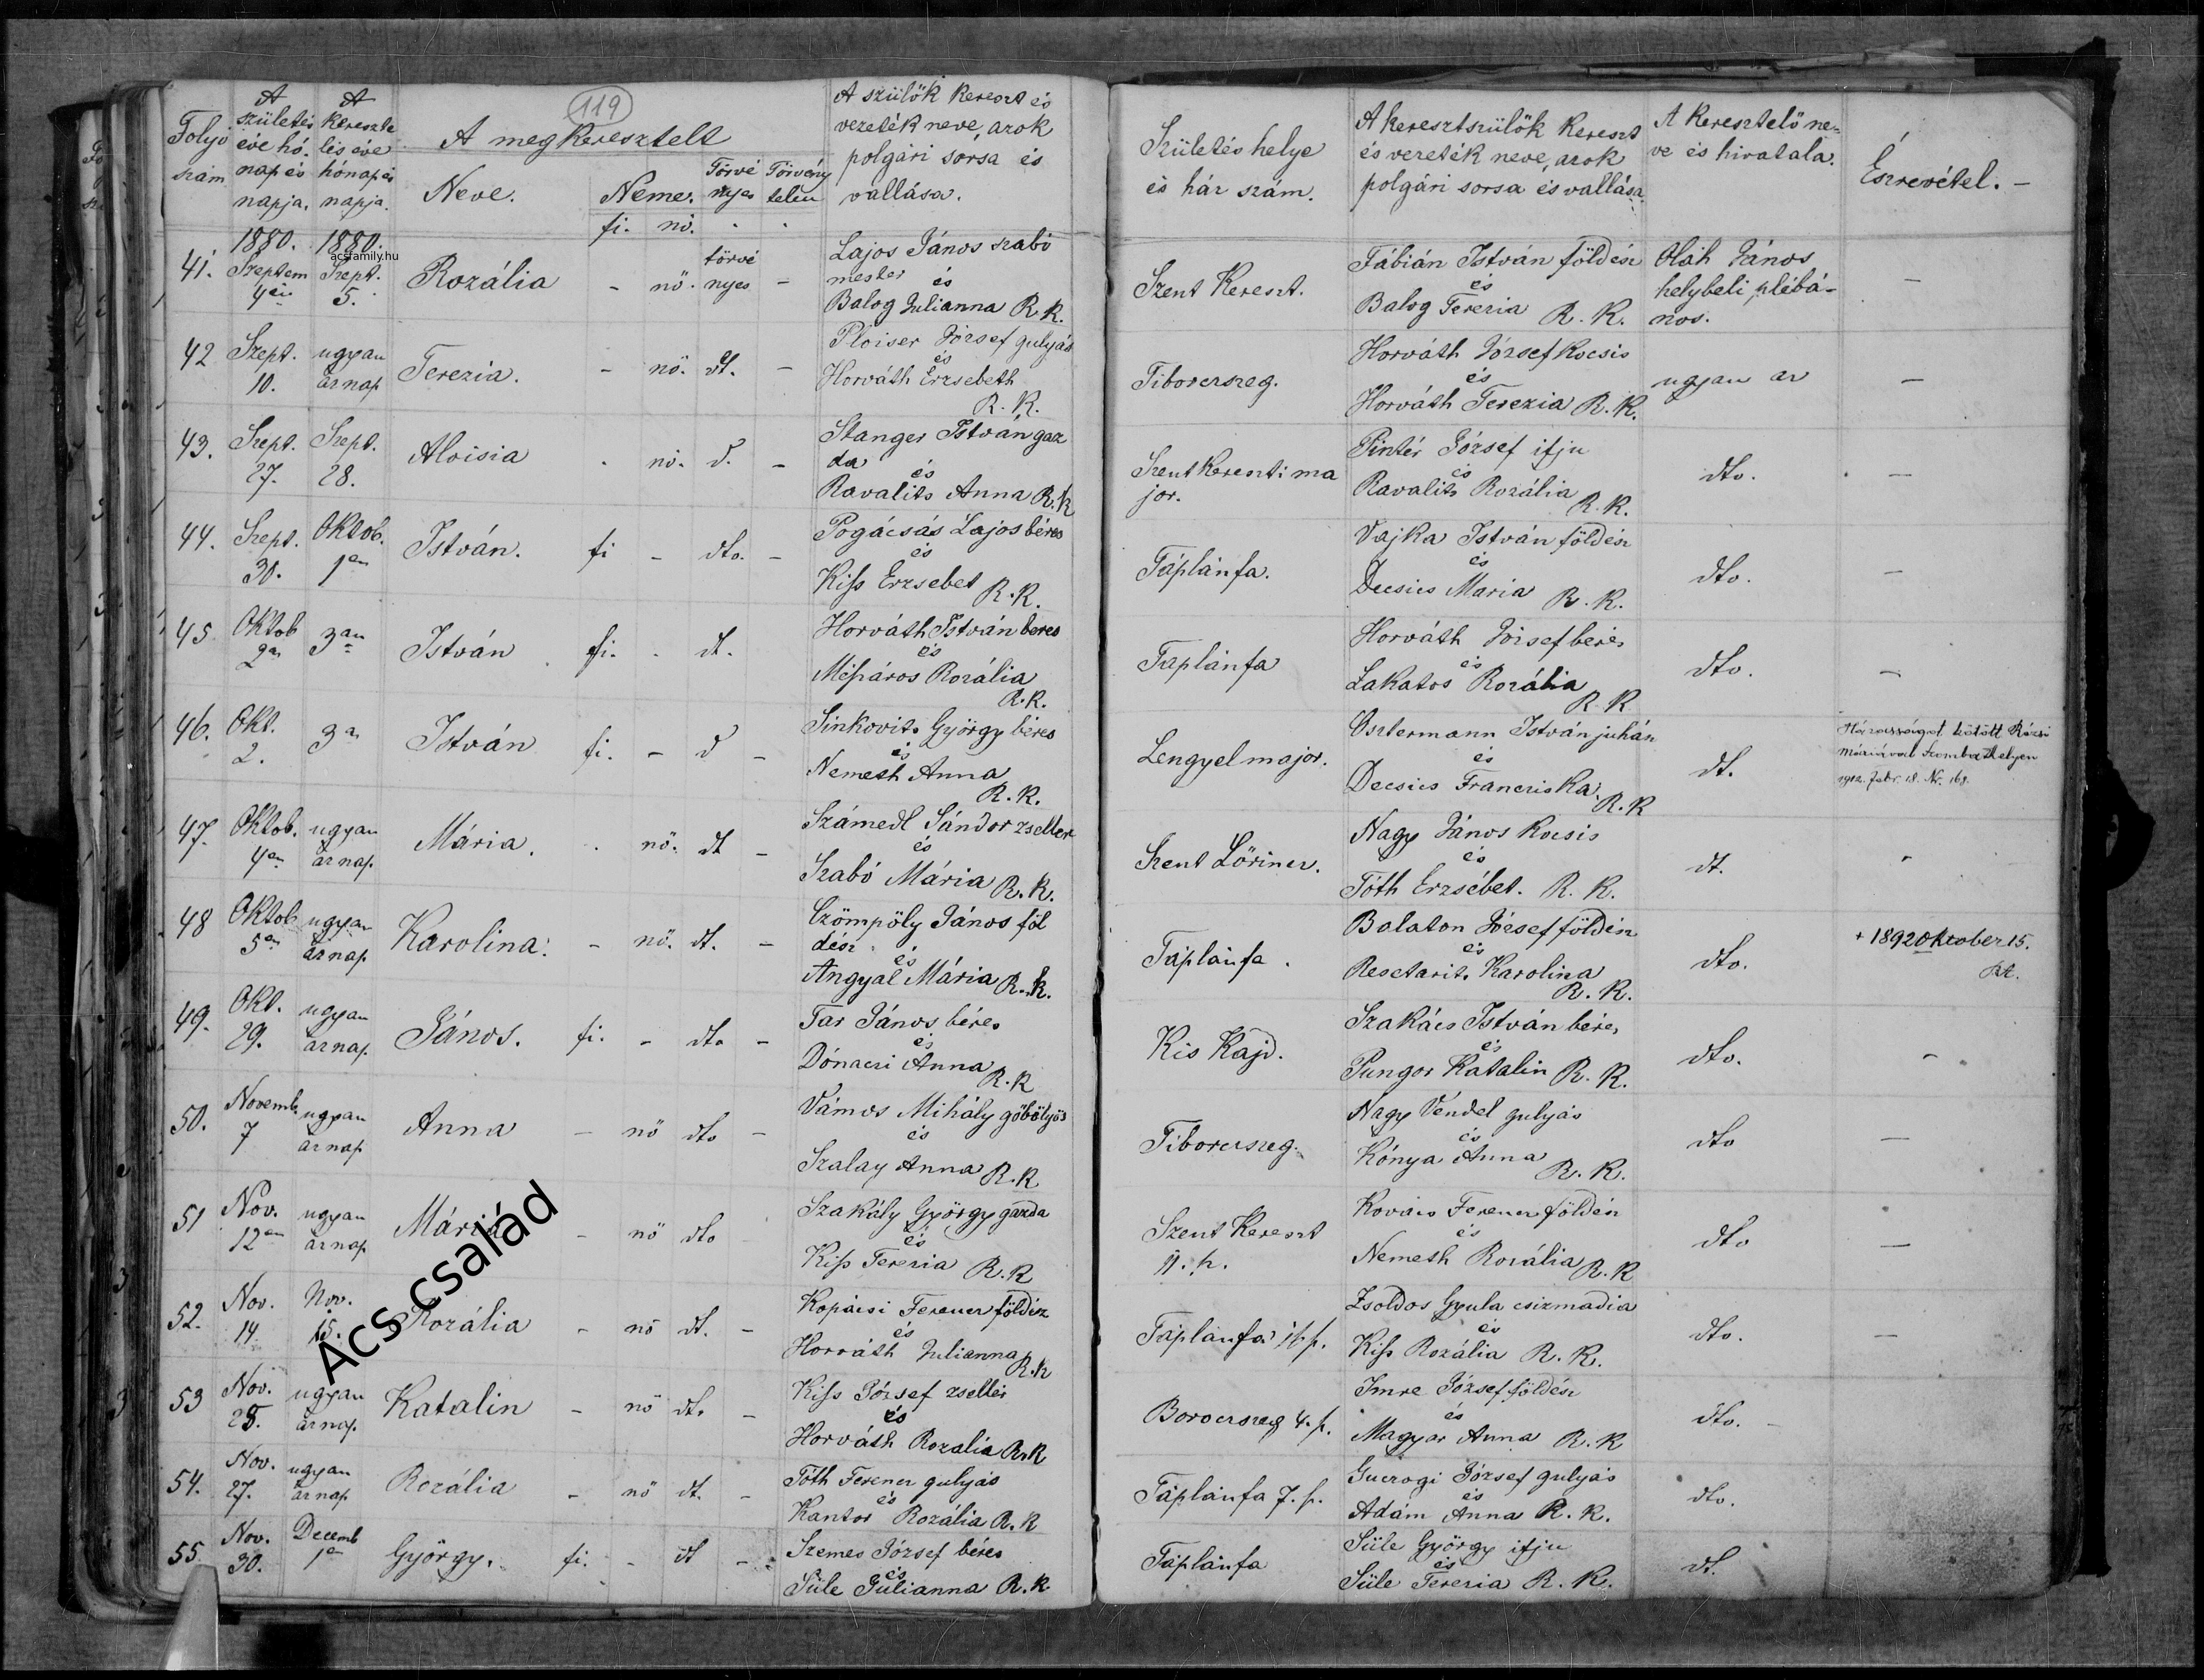 119
Folyó szám
A születés éve hó- nap és napja.
A keresztelés éve hónap és napja.
A megkeresztelt
Neve.
Neme.
Törvényes
Törvénytelen
fi. nö.
A szülők kereszt és vezeték neve, azok polgári sorsa és vallása.
Születés helye és ház szám.
A keresztszülők kereszt és vezeték neve, azok polgári sorsa és vallása.
A keresztelő neve és hivatala.
Észrevétel. -
1880. 1880.
acsfamily.hu
41. Szeptem 4én Szept. 5. Rozália - nö. törvényes -
Lajos János szabó
mester és
Balog Julianna R. K.
Szent Kereszt.
Fábián István földész
és
Balog Terezia R. K.
Oláh János
helybeli plébá-
nos.
42 Szept. 10. ugyan az nap Terezia. - nö. dt. -
Ploiser József gulyás
és
Horváth Erzsebeth
R. K.
Tiborcszeg.
Horváth József kocsis
és
Horváth Terezia R. K.
ugyan az
43. Szept. 27. Szept. 28. Aloisia nö. d. -
Stanger István gaz
da
és
Ravalits Anna R. K
Szent Kereszti ma
jor.
Pintér József ifju
és
Ravalits Rozália
R. K.
dto.
44. Szept. 30. Oktob. 1én István. fi - dto. -
Pogácsás Lajos béres
és
Kiss Erzsebet R. K.
Táplánfa.
Vajka István földész
és
Decsics Maria R. K.
dto.
45 Oktob 2án 3án István fi. dt.
Horváth István béres
és
Mészáros Rozália
R. K.
Táplánfa
Horváth József béres
és
Lakatos Rozália
R. K
dto.
46. Okt. 2. 3án István fi. - d -
Sinkovits György béres
és
Nemeth Anna
R. K.
Lengyel major.
Osztermann István juhász
és
Decsics Franciska
R. K
dt.
Házasságot kötött Rózsi
Máriával Szombathelyen
1912. febr. 18. Nr. 168.
47. Oktob. 4én ugyan az nap Mária. nö. dt -
Számedl Sándor zseller
és
Szabó Mária R. K.
Szent Lőrincz.
Nagy János kocsis
és
Tóth Erzsébet. R. K.
dt.
48 Oktob 5én ugyan az nap Karolina. - nö. dt. -
Czömpöly János föl
dész
és
Angyal Mária R. K.
Táplánfa.
Balaton József földész
és
Resetarits Karolina
R. K.
dto.
+ 1892 Oktober 15.
49. Okt. 29. ugyan az nap János. fi. - dto -
Tar János béres
és
Dónaczi Anna
R. K
Kis Kajd.
Szakács István béres
és
Pungor Katalin R. K.
dto.
50. Novemb. 7 ugyan az nap Anna - nö dto -
Vámos Mihály göbölyös
és
Szalay Anna R. K
Tiborcszeg.
Nagy Vendel gulyás
és
Kónya Anna R. K.
dto
51 Nov. 12én ugyan az nap Mária - nö dto
Szakály György gazda
és
Kiss Terezia R. K
Szent Kereszt
11. h.
Kovács Ferencz földész
és
Nemeth Rozália R. K
dto
52. Nov. 14. Nov. 15. Rozália - nö dt. -
Kopácsi Ferencz földész
és
Horváth Julianna
R. K
Táplánfa 16 h.
Zsoldos Gyula csizmadia
és
Kiss Rozália R. K.
dto.
53 Nov. 25. ugyan az nap. Katalin - nö dt. -
Kiss József zsellér
és
Horváth Rozalia R. K
Boroczszeg 4. h.
Imre József földész
és
Magyar Anna R. K
dto. -
54. Nov. 27. ugyan az nap Rozália - nö dt. -
Tóth Ferencz gulyás
és
Kantor Rozália R. K
Táplánfa 7. h.
Guczogi József gulyás
és
Adám Anna R. K.
dto.
55. Nov. 30. Decemb 1én György. fi. - dt -
Szemes József béres
és
Süle Julianna R. K
Táplánfa
Süle György ifju
és
Süle Terezia R. K.
dt.
Ács család